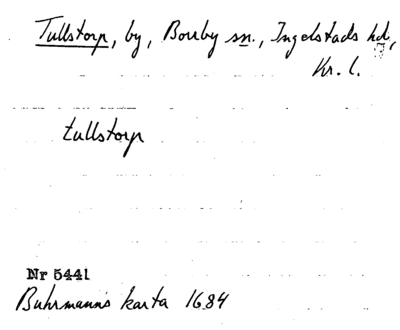 Tullstorp, by, Borrby sn., Ingelstads hd,
Kr. l.
tullstorp
Nr 5441
Buhrmanns karta 1684